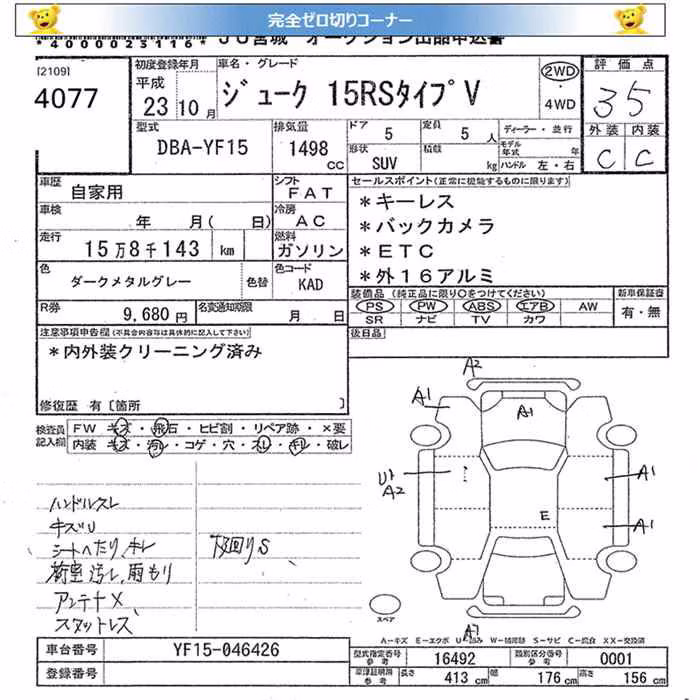 完全ゼロ切りコーナー
*4000023116* JU宮城 オークション出品申込書
[2109]
4077
初度登録年月
平成
23 10 月
車名・グレード
ジューク 15RSタイプV
2WD
・
4WD
評価点
35
外装 内装
C C
型式
DBA-YF15
排気量
1498
CC
ドア 5
定員 5 人
形状 SUV
積載 kg
ディーラー・並行
モデル年式 年
ハンドル 左・右
車歴
自家用
シフト
FAT
車検
年 月( 日)
冷房
AC
走行
15万8千143 km
燃料
ガソリン
色
ダークメタルグレー
色替
色コード
KAD
R券
9,680円
名変通知期限
月 日
セールスポイント(正常に機能するものに限ります)
*キーレス
*バックカメラ
*ETC
*外16アルミ
装備品(純正品に限り○をつけてください)
PS PW ABS エアB AW
SR ナビ TV カワ
新車保証書
有・無
後日品
注意事項申告欄(不具合内容等は具体的に記入して下さい)
*内外装クリーニング済み
修復歴 有[箇所 ]
検査員記入欄
FW キズ・飛石・ヒビ割・リペア跡・×要
内装 キズ・汚レ・コゲ・穴・スレ・キレ・破レ
ハンドルスレ
キズU
シートへたり、キレ
荷室汚レ、雨もり
アンテナX、
スタットレス
下回りS
A2
A1
A1
U1
A2
A1
A1
E
スペア
A-キズ E-エクボ U-凹み W-補修跡 S-サビ C-腐食 XX-交換済
車台番号
YF15-046426
登録番号
型式指定番号
参考
16492
類別区分番号
参考
0001
車検証期限
参考
長さ 413 cm
幅 176 cm
高さ 156 cm